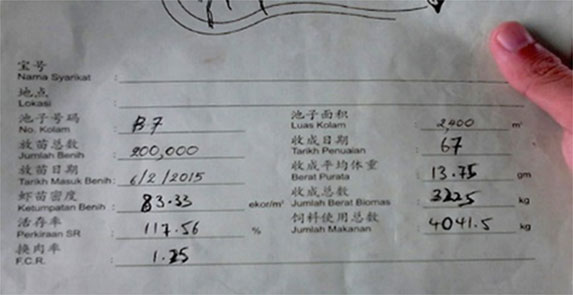 宝号
Nama Syarikat :
地点
Lokasi :
池子号码
No. Kolam : B7
放苗总数
Jumlah Benih : 200,000
放苗日期
Tarikh Masuk Benih : 6/2/2015
虾苗密度
Ketumpatan Benih : 83.33 ekor/m²
活存率
Perkiraan SR : 117.56 %
换肉率
F.C.R. : 1.25
池子面积
Luas Kolam : 2,400 m²
收成日期
Tarikh Penuaian : 67
收成平均体重
Berat Purata : 13.75 gm
收成总数
Jumlah Berat Biomas : 3225 kg
饲料使用总数
Jumlah Makanan : 4041.5 kg